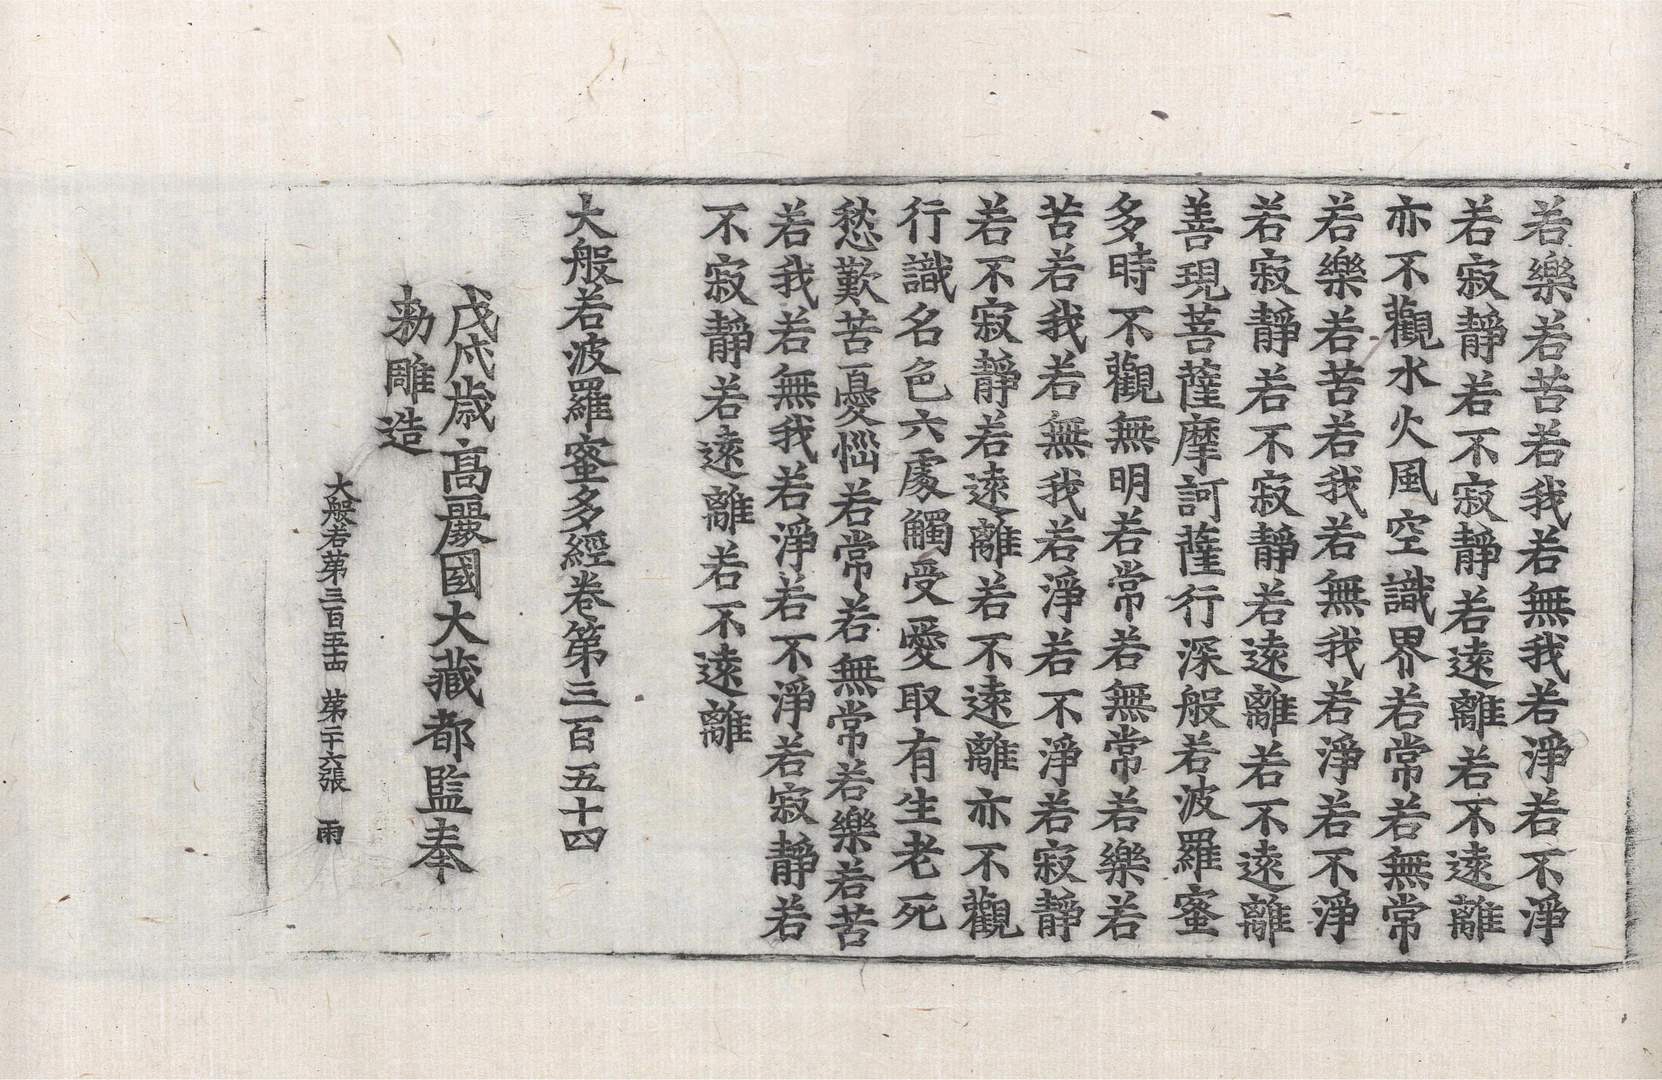 若樂若苦若我若無我若淨若不淨
若寂靜若不寂靜若遠離若不遠離
亦不觀水火風空識界若常若無常
若樂若苦若我若無我若淨若不淨
若寂靜若不寂靜若遠離若不遠離
善現菩薩摩訶薩行深般若波羅蜜
多時不觀無明若常若無常若樂若
苦若我若無我若淨若不淨若寂靜
若不寂靜若遠離若不遠離亦不觀
行識名色六處觸受愛取有生老死
愁歎苦憂惱若常若無常若樂若苦
若我若無我若淨若不淨若寂靜若
不寂靜若遠離若不遠離
大般若波羅蜜多經卷第三百五十四
戊戌歲高麗國大藏都監奉
勅雕造
大般若第三百五十四 第二十六張 雨